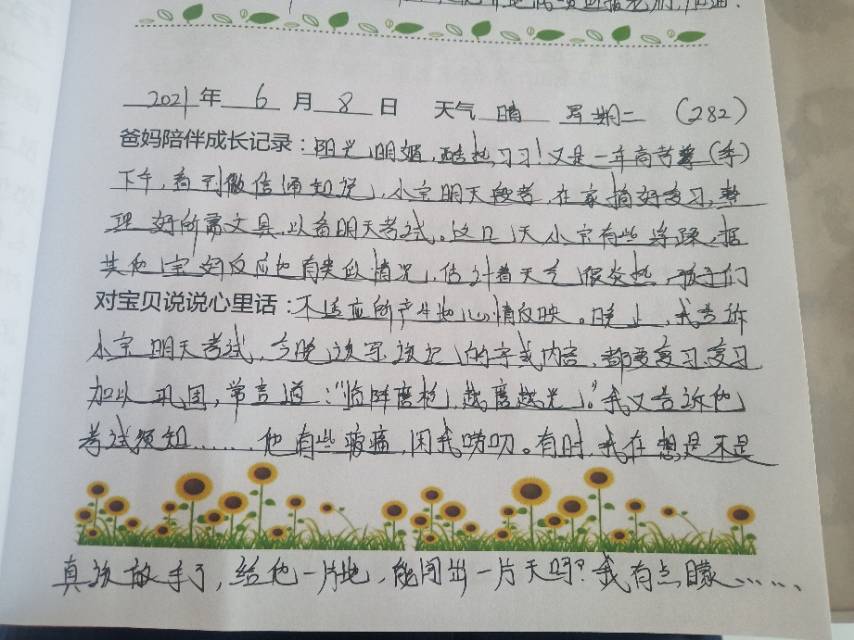 2021年6月8日 天气 晴 星期二 (282)
爸妈陪伴成长记录:阳光明媚,酷热习习!又是一年高考季(季)
下午,看到微信通知说,小宗明天般考,在家搞好复习,整
理好所需文具,以备明天考试。这几天小宗有些浮躁,据
其他宝妈反应也有类似情况,估计着天气很炎热,孩子们
对宝贝说说心里话:不适应所产生地心情反映。晚上,我告诉
小宗明天考试,今晚该写该记的字或内容,都要复习复习
加以巩固,常言道:"临阵磨枪,越磨越光"。我又告诉他
考试须知……他有些 闲我唠叨。有时,我在想是不是
真该放手了,给他一片地,能闯出一片天吗?我有点朦……